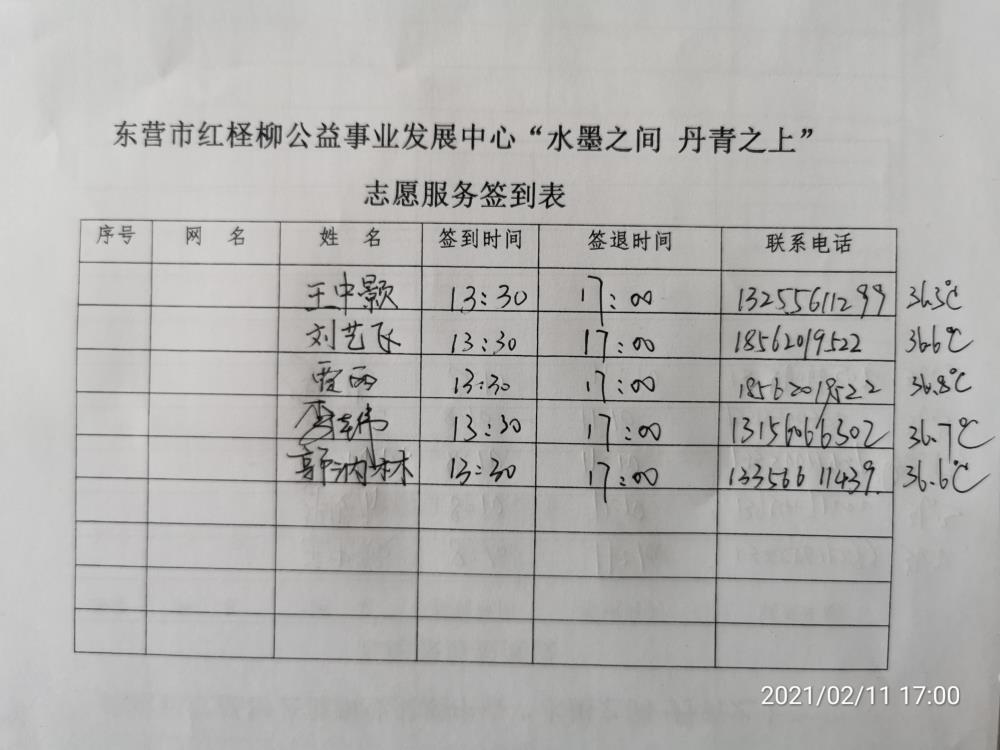 东营市红柽柳公益事业发展中心“水墨之间 丹青之上”
志愿服务签到表
序号 网 名 姓 名 签到时间 签退时间 联系电话
王中颢 13:30 17:00 13255611299 36.3℃
刘艺飞 13:30 17:00 18562019522 36.6℃
贾雨 13:30 17:00 18562018522 36.8℃
13:30 17:00 13156066302 36.7℃
郭汭林 13:30 17:00 13356611439. 36.6℃
2021/02/11 17:00